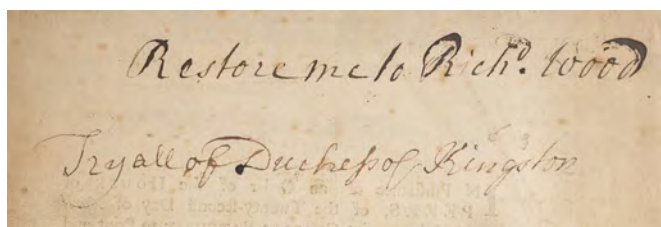 Restore me to Richᵈ. Wood
Tryall of Duchess of Kingston